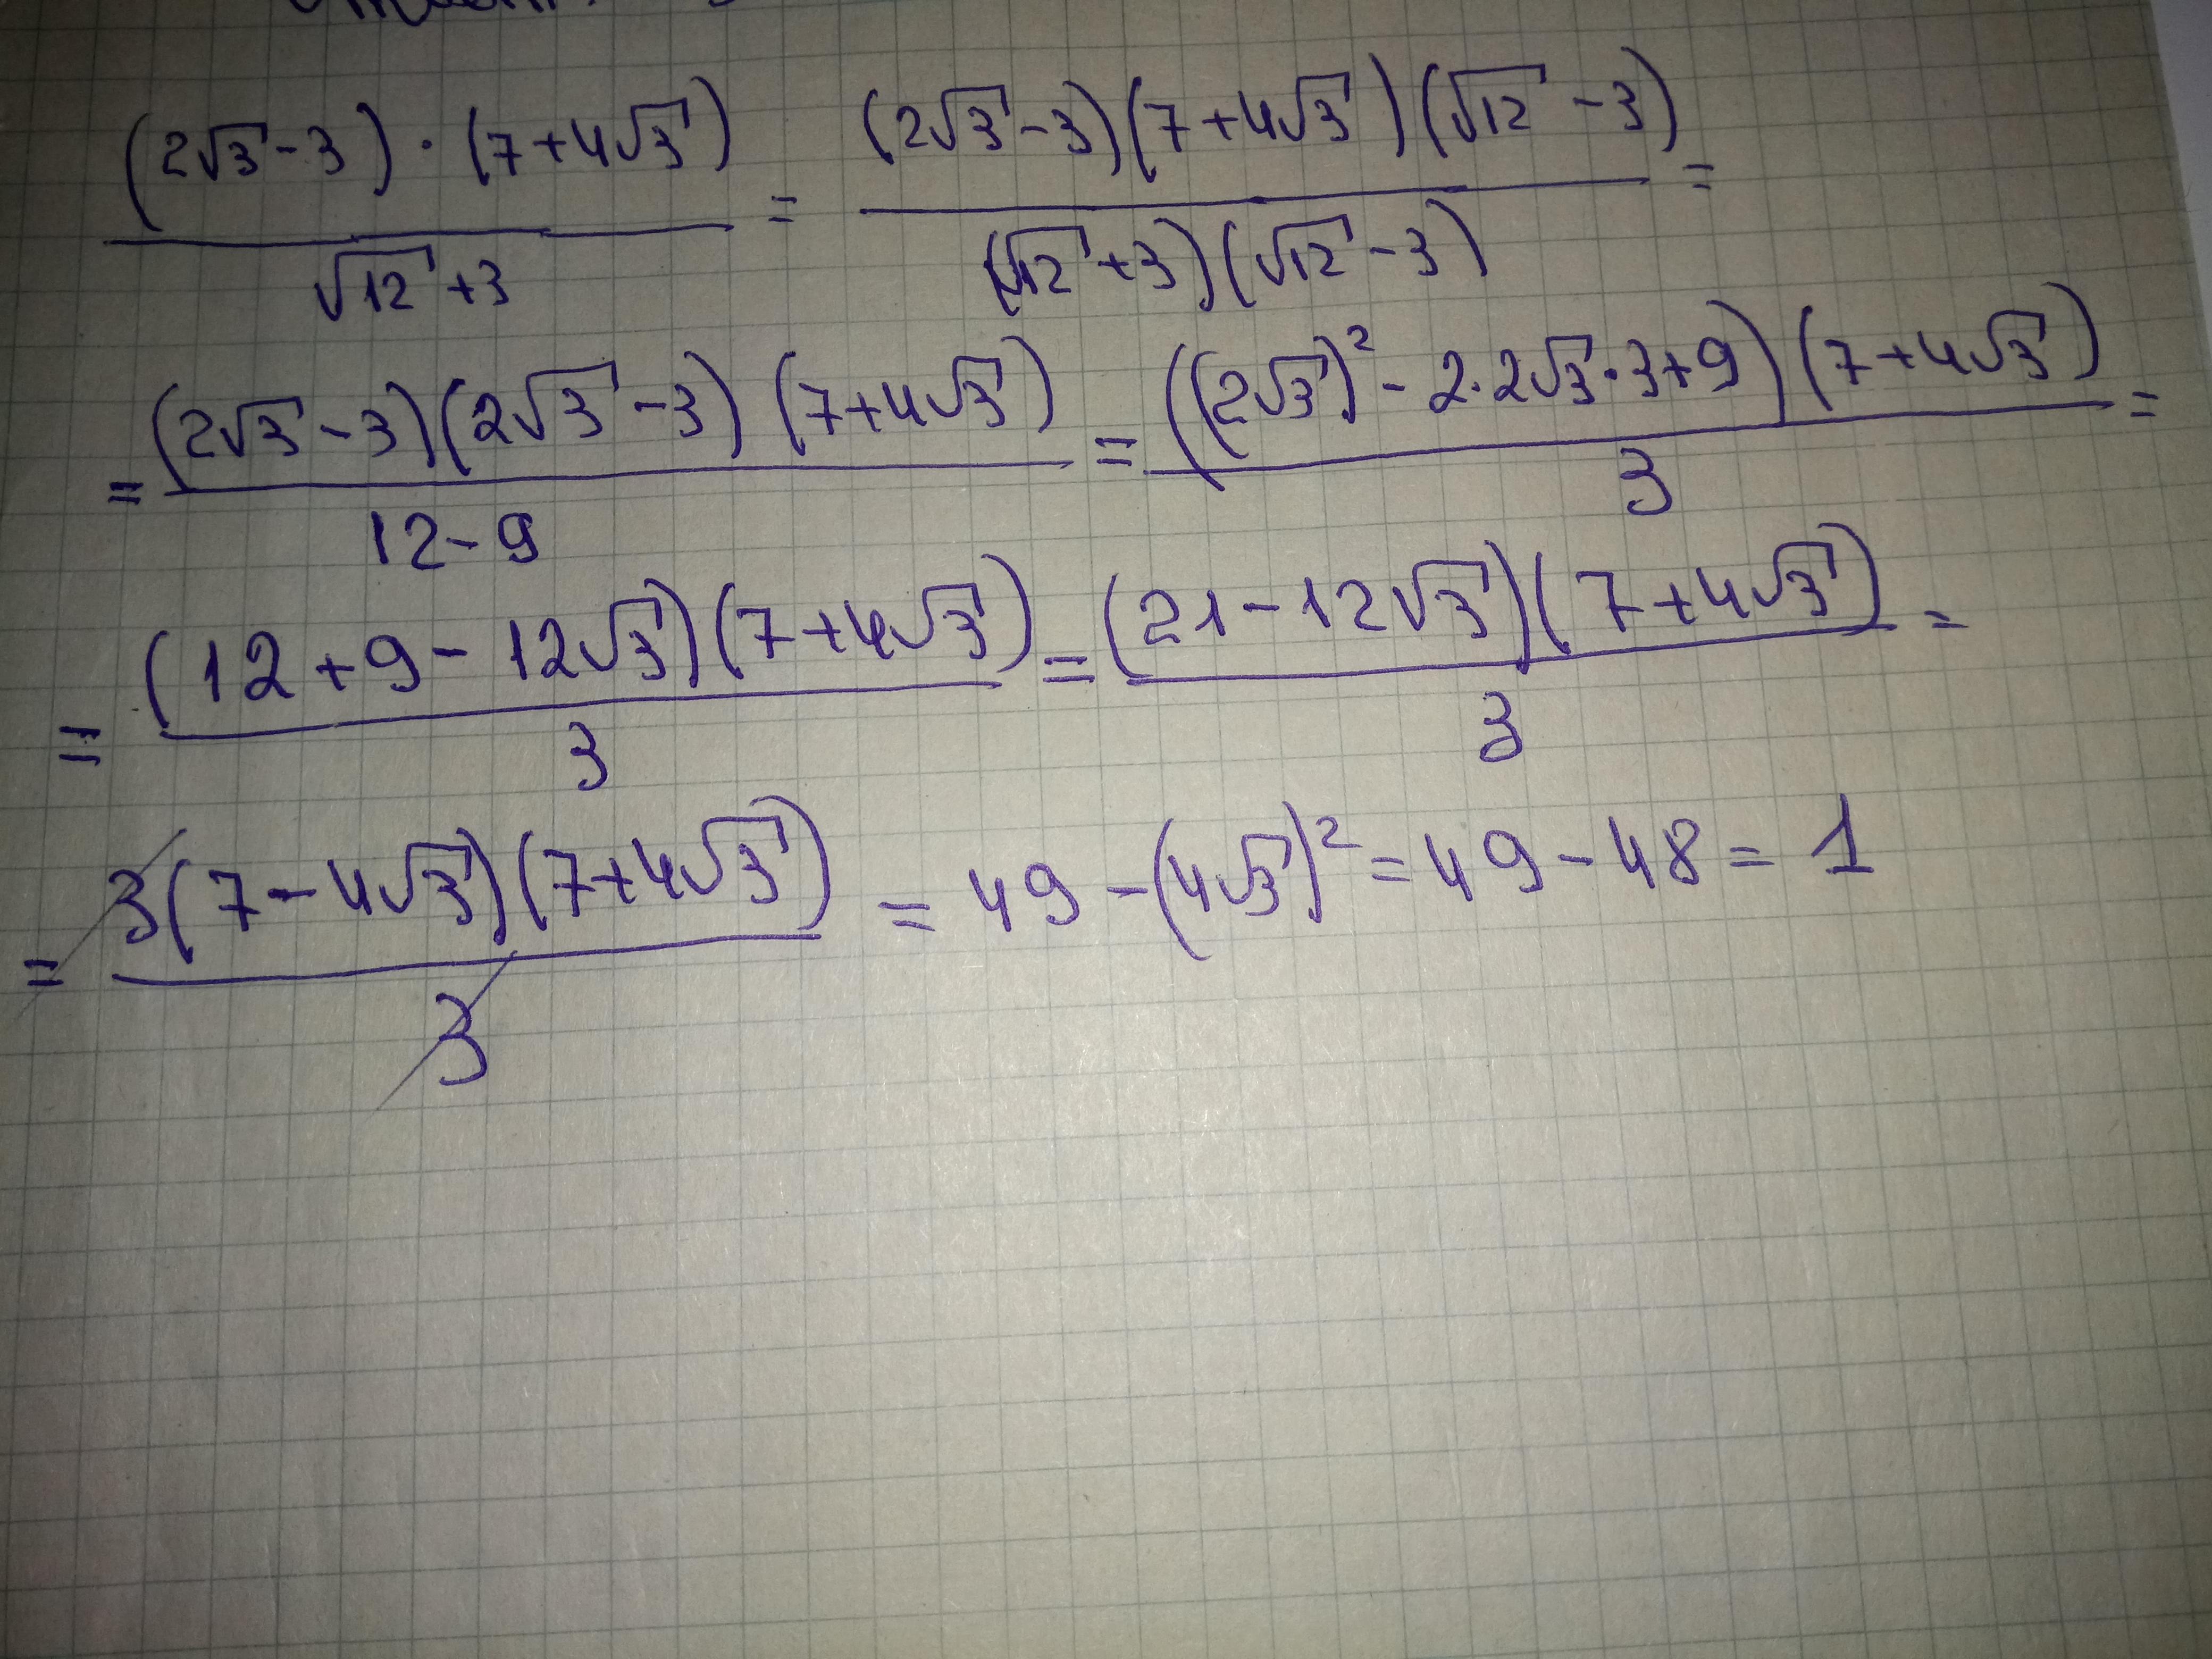 (2√3 - 3) · (7 + 4√3) / (√12 + 3) = (2√3 - 3)(7 + 4√3)(√12 - 3) / (√12 + 3)(√12 - 3) =
= (2√3 - 3)(2√3 - 3)(7 + 4√3) / (12 - 9) = ((2√3)² - 2·2√3·3 + 9)(7 + 4√3) / 3 =
= (12 + 9 - 12√3)(7 + 4√3) / 3 = (21 - 12√3)(7 + 4√3) / 3 =
= 3(7 - 4√3)(7 + 4√3) / 3 = 49 - (4√3)² = 49 - 48 = 1